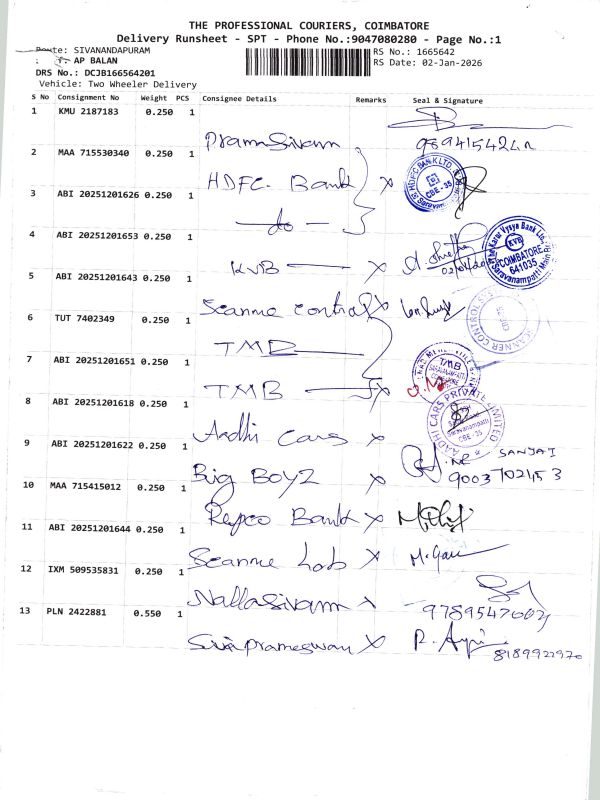 THE PROFESSIONAL COURIERS, COIMBATORE
Delivery Runsheet - SPT - Phone No.:9047080280 - Page No.:1
Route: SIVANANDAPURAM
RS No.: 1665642
: AP BALAN
RS Date: 02-Jan-2026
DRS No.: DCJB166564201
Vehicle: Two Wheeler Delivery
S No Consignment No Weight PCS Consignee Details Remarks Seal & Signature
1 KMU 2187183 0.250 1
PramaSivam
2 MAA 715530340 0.250 1
HDFC Bank x
HDFC BANK LTD. CBE-35
3 ABI 20251201626 0.250 1
— do —
4 ABI 20251201653 0.250 1
KVB — x
The Karur Vysya Bank Ltd. KVB COIMBATORE 641035 Saravanampatti
5 ABI 20251201643 0.250 1
Scanme Control x
SCANNER CONTROL
6 TUT 7402349 0.250 1
TMB
7 ABI 20251201651 0.250 1
TMB — x
TMB
8 ABI 20251201618 0.250 1
Aadhi Cars x
AADHI CARS PRIVATE LIMITED Saravanampatti CBE-35
9 ABI 20251201622 0.250 1
Big Boyz
SANJAI
9003702153
10 MAA 715415012 0.250 1
Repco Bank x
11 ABI 20251201644 0.250 1
Scanme Lab x
12 IXM 509535831 0.250 1
Nallasivam x
13 PLN 2422881 0.550 1
Sivaprameswan x
8189922970